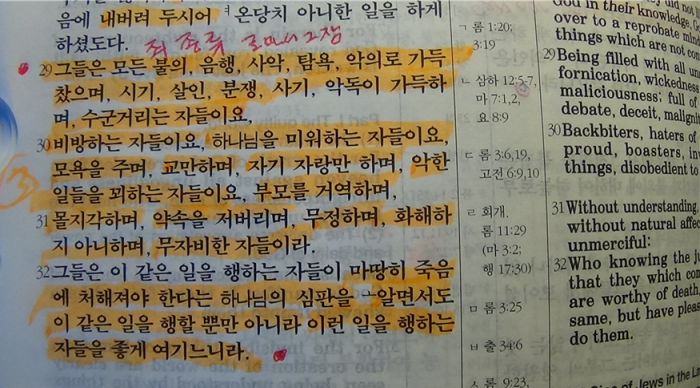 음에 내버려 두시어 ㅋ온당치 아니한 일을 하게
하셨도다.
29 그들은 모든 불의, 음행, 사악, 탐욕, 악의로 가득
찼으며, 시기, 살인, 분쟁, 사기, 악독이 가득하
며, 수군거리는 자들이요,
30 비방하는 자들이요, 하나님을 미워하는 자들이요,
모욕을 주며, 교만하며, 자기 자랑만 하며, 악한
일들을 꾀하는 자들이요, 부모를 거역하며,
31 몰지각하며, 약속을 저버리며, 무정하며, 화해하
지 아니하며, 무자비한 자들이라.
32 그들은 이 같은 일을 행하는 자들이 마땅히 죽음
에 처해져야 한다는 하나님의 심판을 알면서도
이 같은 일을 행할 뿐만 아니라 이런 일을 행하는
자들을 좋게 여기느니라.
ㄱ 롬 1:20;
3:19
ㄴ 삼하 12:5-7,
마 7:1,2,
요 8:9
ㄷ 롬 3:6,19,
고전 6:9,10
ㄹ 회개,
롬 11:29
(마 3:2;
행 17:30)
ㅁ 롬 3:25
ㅂ 출 34:6
ㅅ 롬 9:23,
God in their knowledge,
over to a reprobate
things which are not
29 Being filled with all
fornication, wickedness
maliciousness; full of
debate, deceit,
30 Backbiters, haters of
proud, boasters,
things, disobedient to
31 Without understanding,
without natural
unmerciful:
32 Who knowing the
that they which
are worthy of death,
same, but have
do them.
of Jews in the